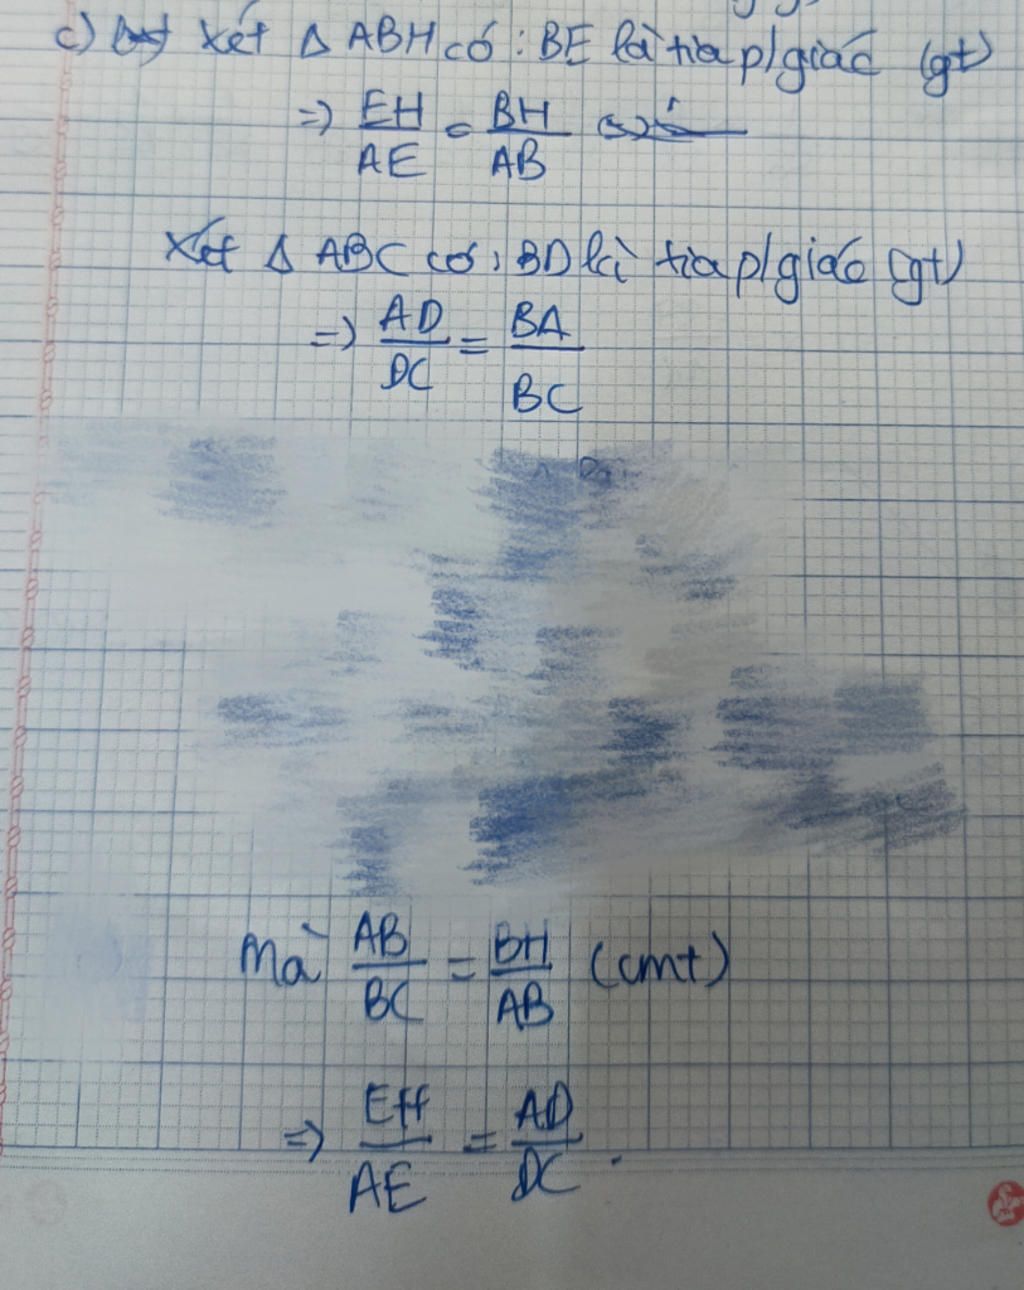 c) Xét Δ ABH có : BE là tia p/giác (gt)
=> EH/AE = BH/AB
Xét Δ ABC có, BD là tia p/giác (gt)
=> AD/DC = BA/BC
Mà AB/BC = BH/AB (cmt)
=> EH/AE = AD/DC .